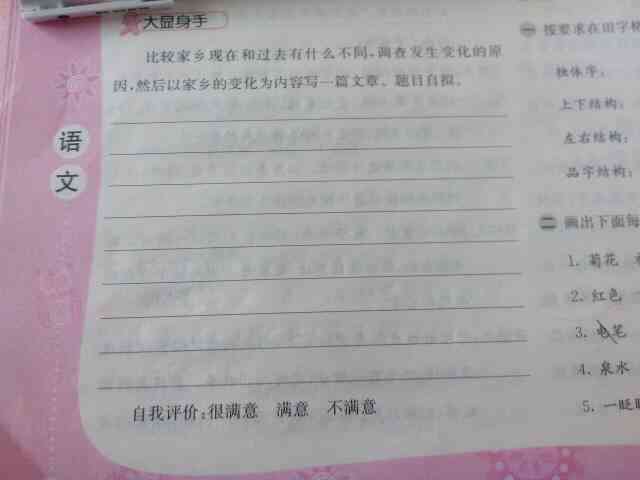 大显身手
比较家乡现在和过去有什么不同,调查发生变化的原
因,然后以家乡的变化为内容写一篇文章。题目自拟。
自我评价:很满意 满意 不满意
语
文
一 按要求在田字
独体字:
上下结构:
左右结构:
品字结构:
二 画出下面每
1. 菊花
2. 红色
3. 电笔
4. 泉水
5. 一眨眼